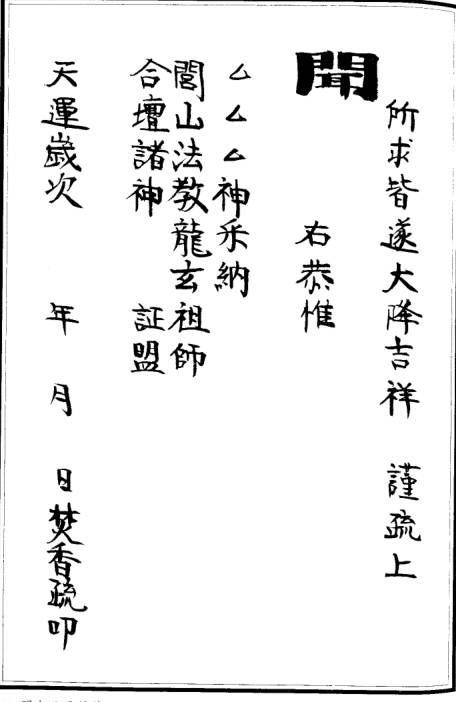 所求皆遂大降吉祥 謹疏上
聞
右恭惟
厶厶厶神釆納
閭山法教龍玄祖師
合壇諸神 証盟
天運歲次 年 月 日焚香疏叩